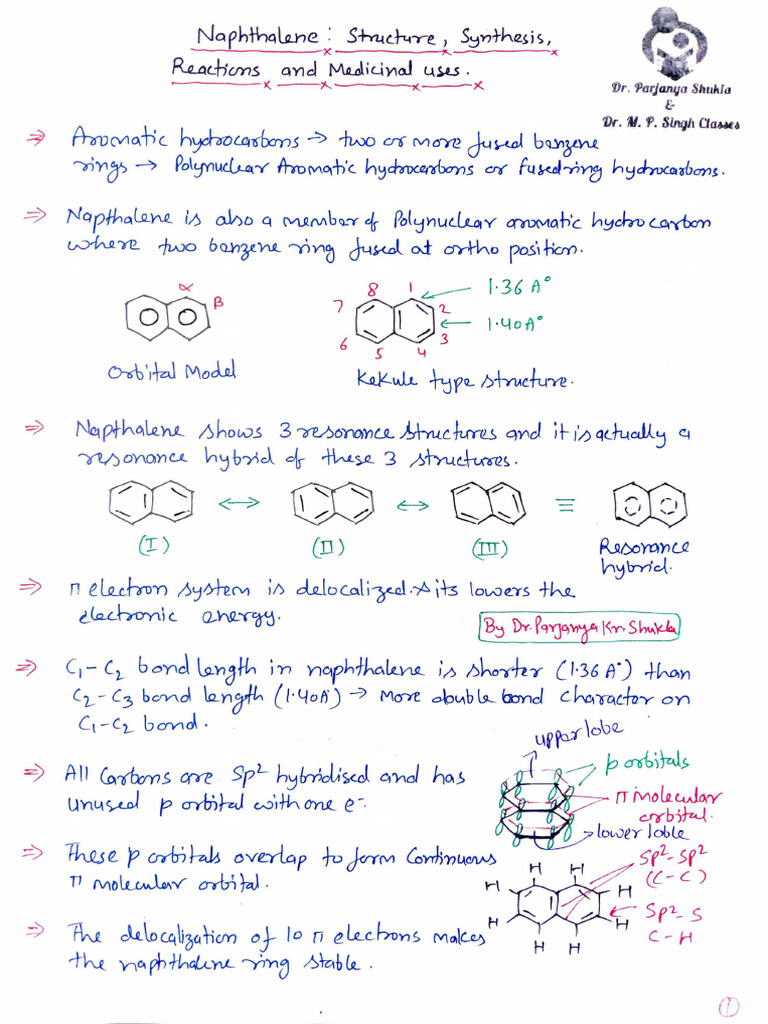 Naphthalene: Structure, Synthesis,
Reactions and Medicinal uses.
Dr. Parjanya Shukla
&
Dr. M. P. Singh Classes
⇒ Aromatic hydrocarbons → two or more fused benzene
rings → Polynuclear Aromatic hydrocarbons or fused ring hydrocarbons.
⇒ Napthalene is also a member of Polynuclear aromatic hydrocarbon
where two benzene ring fused at ortho position.
α
β
Orbital Model
8 1
7 2
6 3
5 4
1.36 A°
1.40A°
Kekule type structure.
⇒ Napthalene shows 3 resonance structures and it is actually a
resonance hybrid of these 3 structures.
↔ ↔ ≡
(I) (II) (III) Resonance
hybrid.
⇒ π electron system is delocalized. & its lowers the
electronic energy.
By Dr. Parjanya Kr. Shukla
⇒ C₁-C₂ bond length in naphthalene is shorter (1.36 A°) than
C₂-C₃ bond length (1.40A°) → More double bond character on
C₁-C₂ bond.
⇒ All Carbons are Sp² hybridised and has
unused p orbital with one e-.
upper lobe
p orbitals
π molecular
orbital.
lower loble
⇒ These p orbitals overlap to form Continuous
π molecular orbital.
⇒ The delocalization of 10 π electrons makes
the naphthalene ring stable.
H H
H H
H H
H H
Sp²-Sp²
(C-C)
Sp²-S
C-H
1